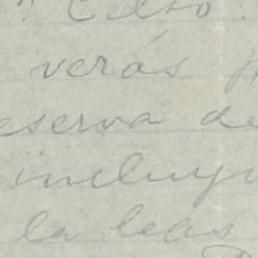 " Celso.
verás
eserva de
incluyo
la leas